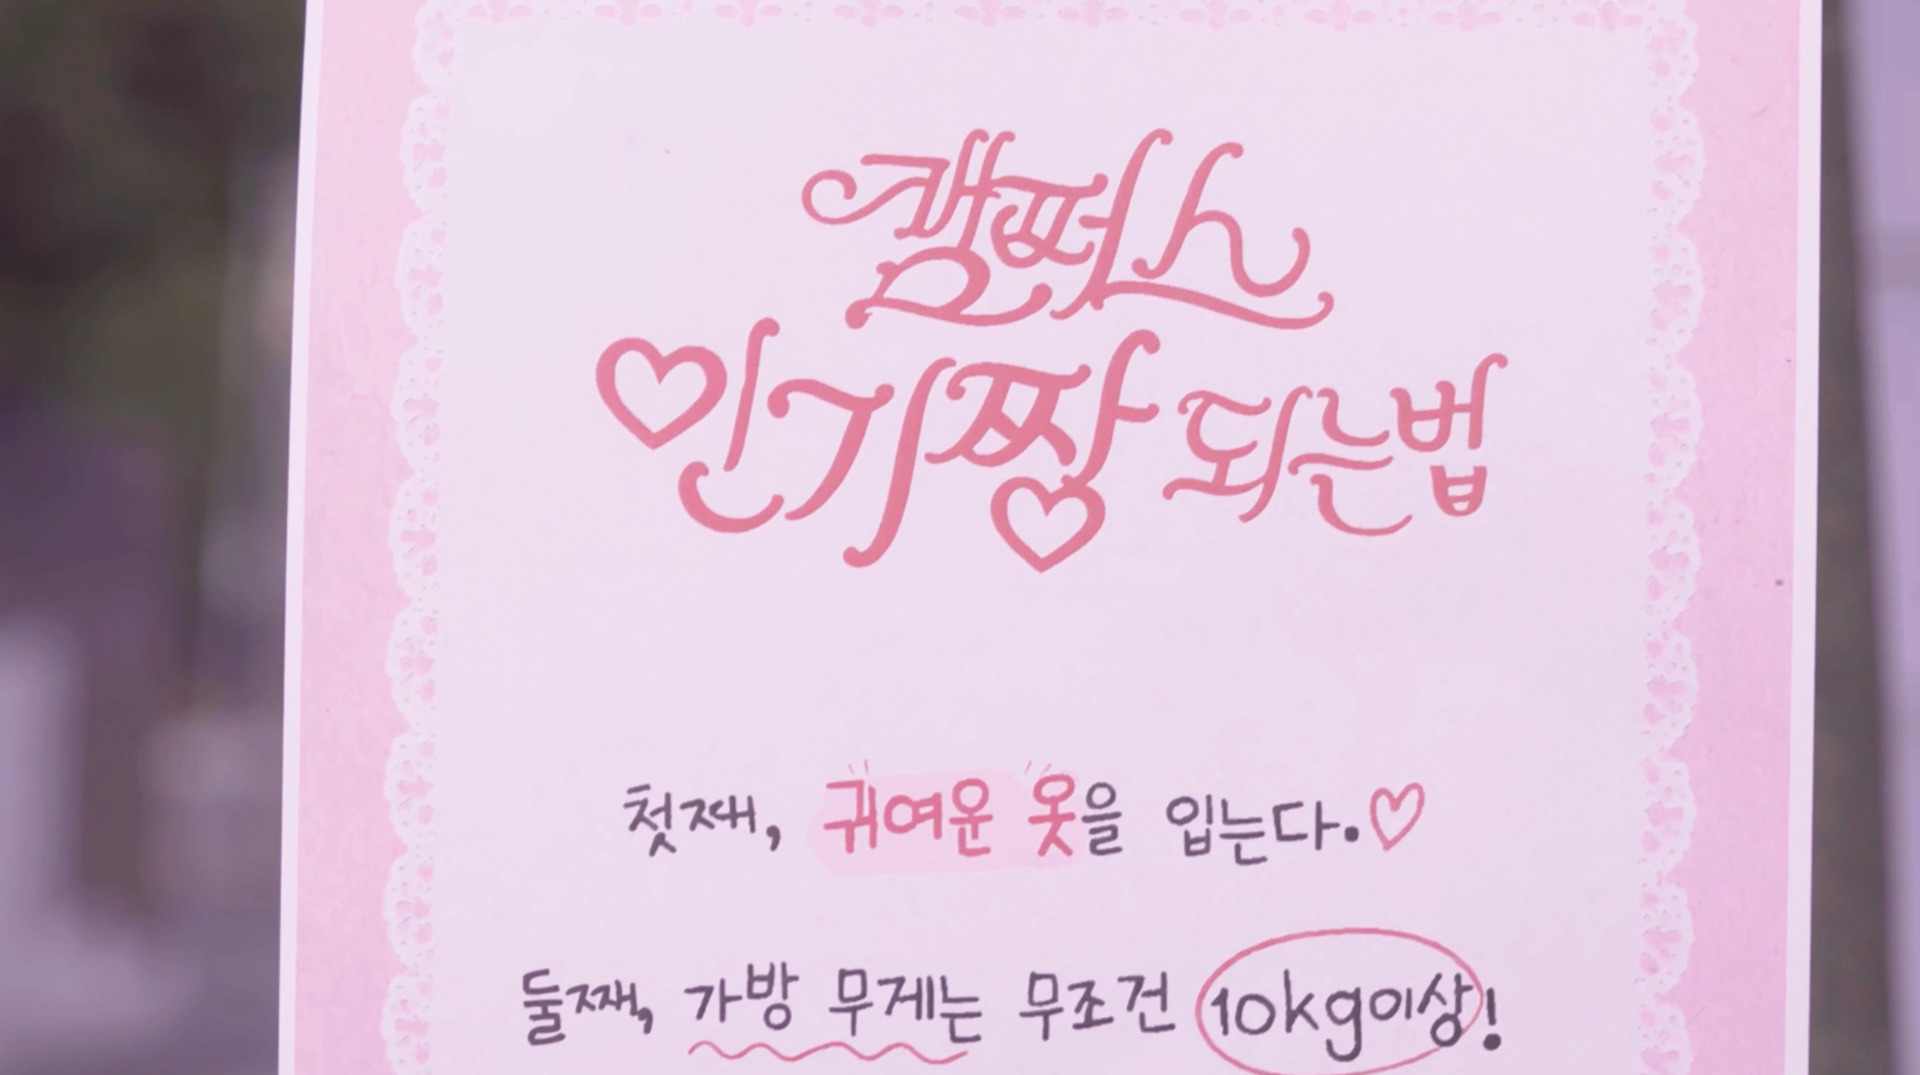 캠퍼스
인기짱 되는법
첫째, 귀여운 옷을 입는다.
둘째, 가방 무게는 무조건 10kg이상!